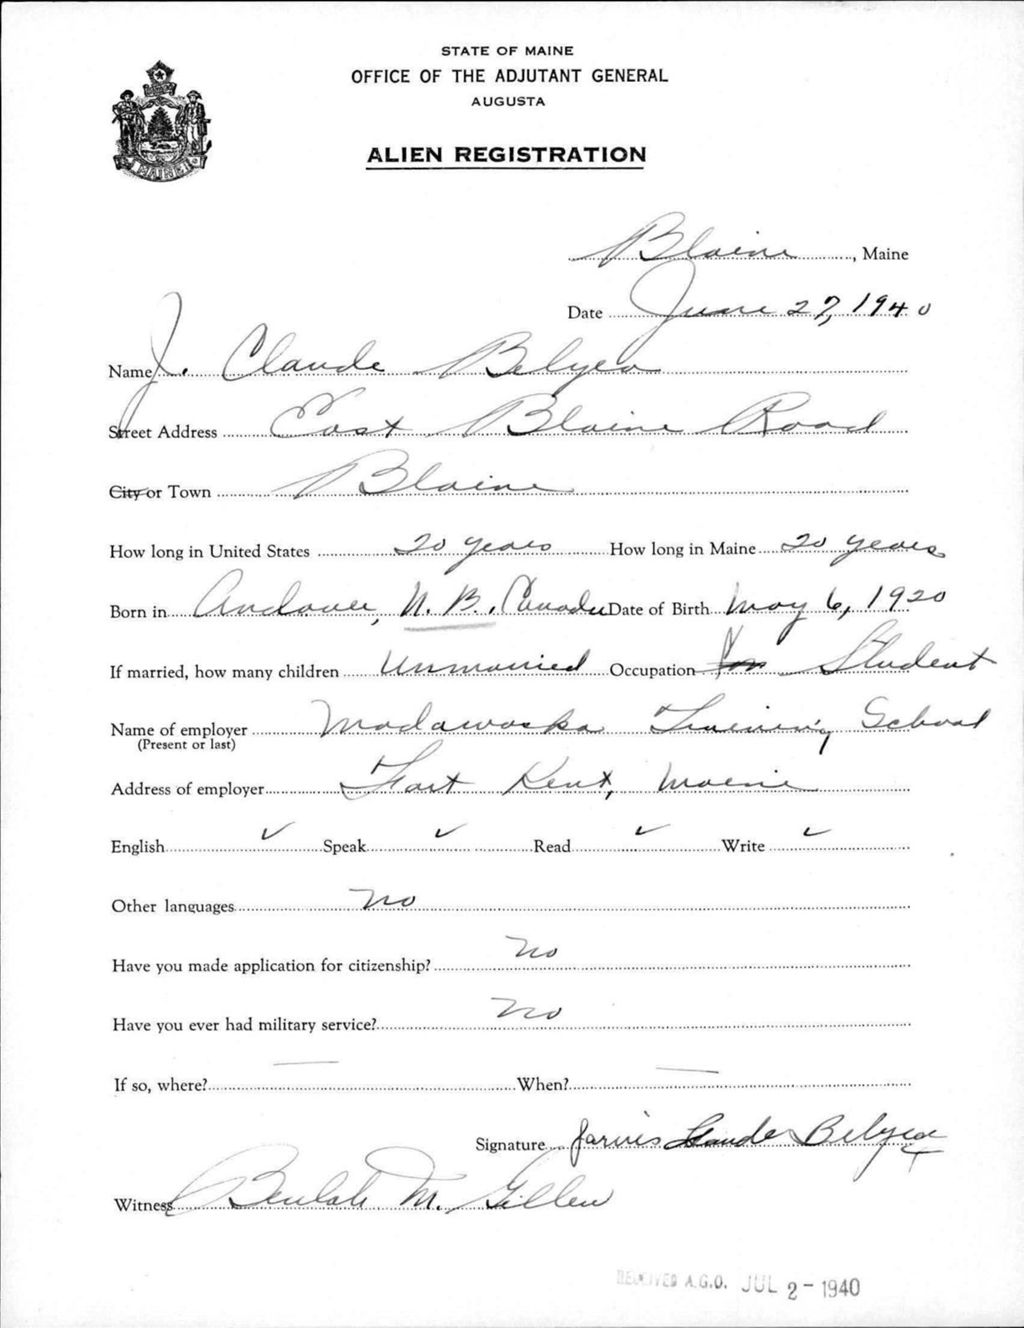 STATE OF MAINE
OFFICE OF THE ADJUTANT GENERAL
AUGUSTA
MAINE
ALIEN REGISTRATION
Blaine, Maine
Date June 27, 1940
Name J. Claude Belyea
Street Address East Blaine Road
City or Town Blaine
How long in United States 20 years How long in Maine 20 years
Born in Andover, N. B., Canada Date of Birth May 6, 1920
If married, how many children Unmarried Occupation Student
Name of employer Madawaska Training School
(Present or last)
Address of employer Fort Kent, Maine
English ✓ Speak ✓ Read ✓ Write ✓
Other languages No
Have you made application for citizenship? No
Have you ever had military service? No
If so, where? — When? —
Signature Jarvis Claude Belyea
Witness Beulah M. Gillen
RECEIVED A.G.O. JUL 2 - 1940